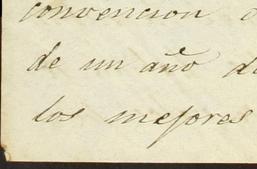 convencion
de un año d
los mejores